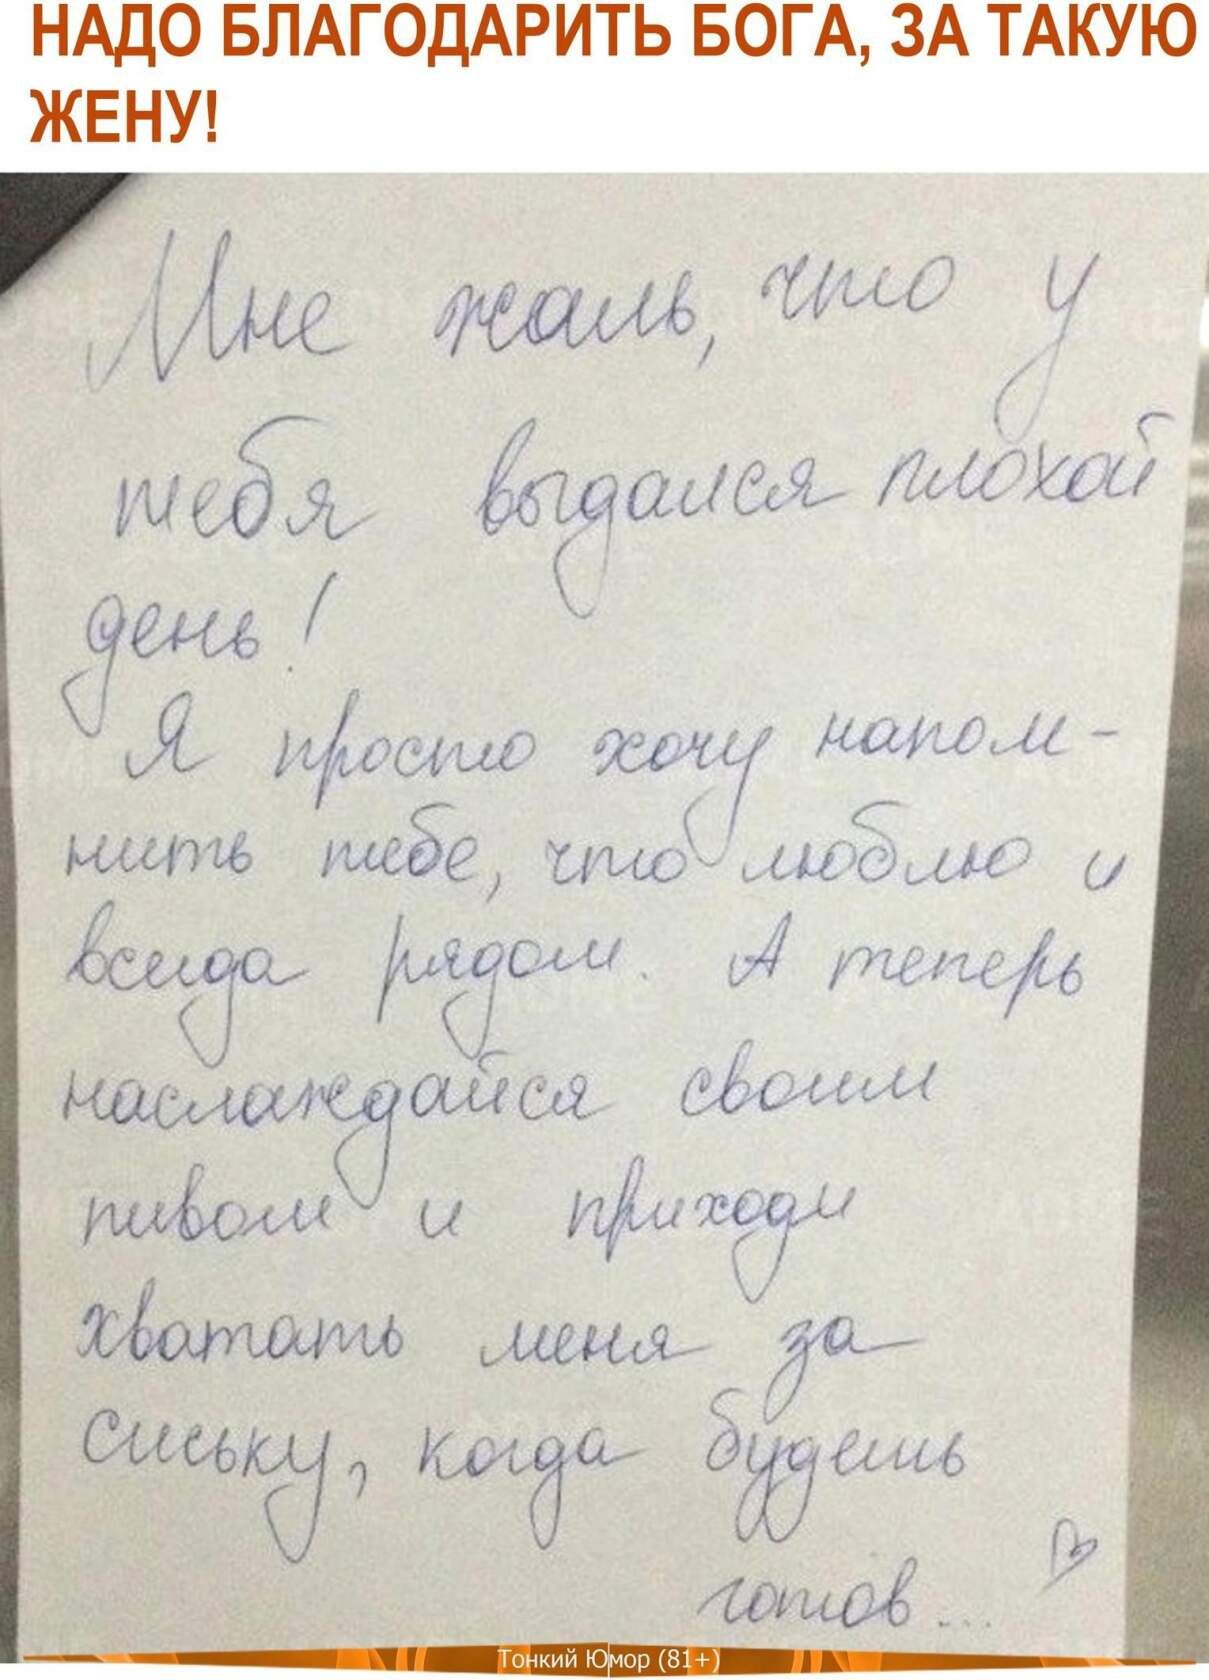 НАДО БЛАГОДАРИТЬ БОГА, ЗА ТАКУЮ
ЖЕНУ!
Мне жаль, что у
тебя выдался плохой
день!
Я просто хочу напом-
нить тебе, что люблю и
всегда рядом. А теперь
наслаждайся своим
пивом и приходи
хватать меня за
сиську, когда будешь
готов...
Тонкий Юмор (81+)